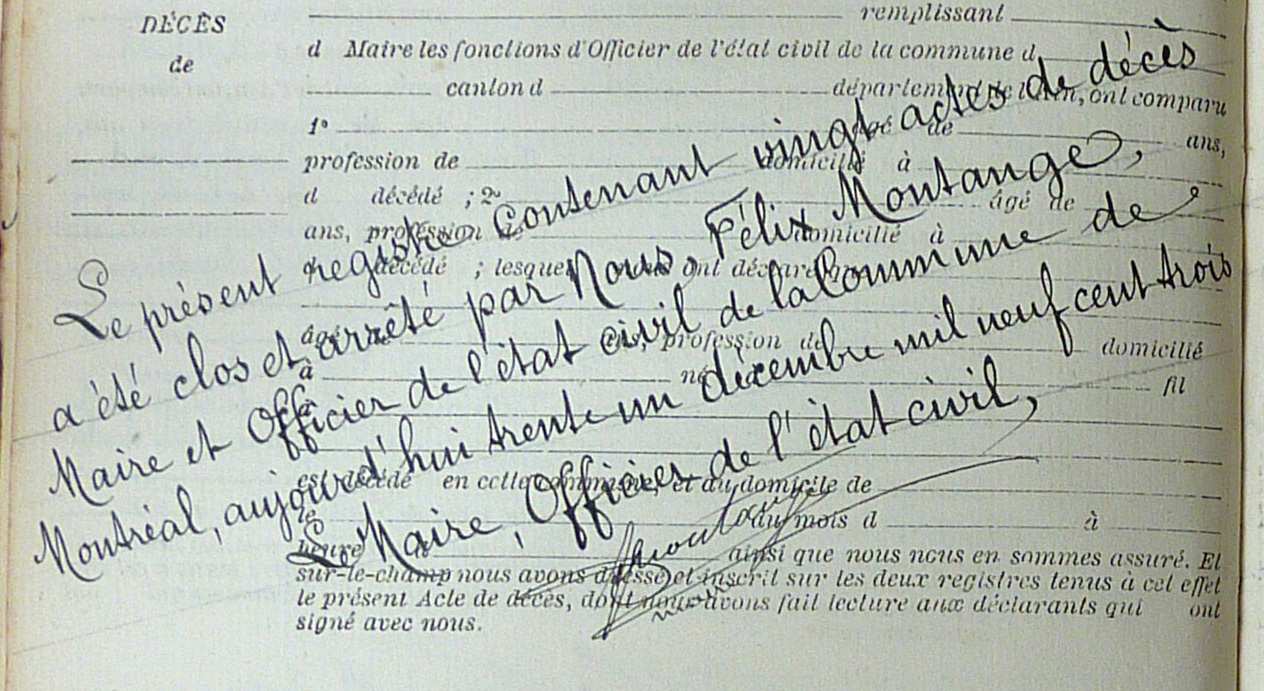 DÉCÈS
de
remplissant
d Maire les fonctions d'Officier de l'état civil de la commune d
canton d département de l'Ain, ont comparu
1° âgé de ans,
profession de domicilié à
d décédé ; 2° âgé de
ans, profession de domicilié à
d décédé ; lesquels ont déclaré que
âgé de ans, profession de domicilié
à né fil
est décédé en cette commune, et au domicile de
le du mois d à
heure ainsi que nous nous en sommes assuré. Et
sur-le-champ nous avons dressé et inscrit sur les deux registres tenus à cet effet
le présent Acte de décès, dont nous avons fait lecture aux déclarants qui ont
signé avec nous.
Le présent registre contenant vingt actes de décès
a été clos et arrêté par Nous, Félix Moutange,
Maire et Officier de l'état civil de la Commune de
Montréal, aujourd'hui trente un décembre mil neuf cent trois
Le Maire, Officier de l'état civil,